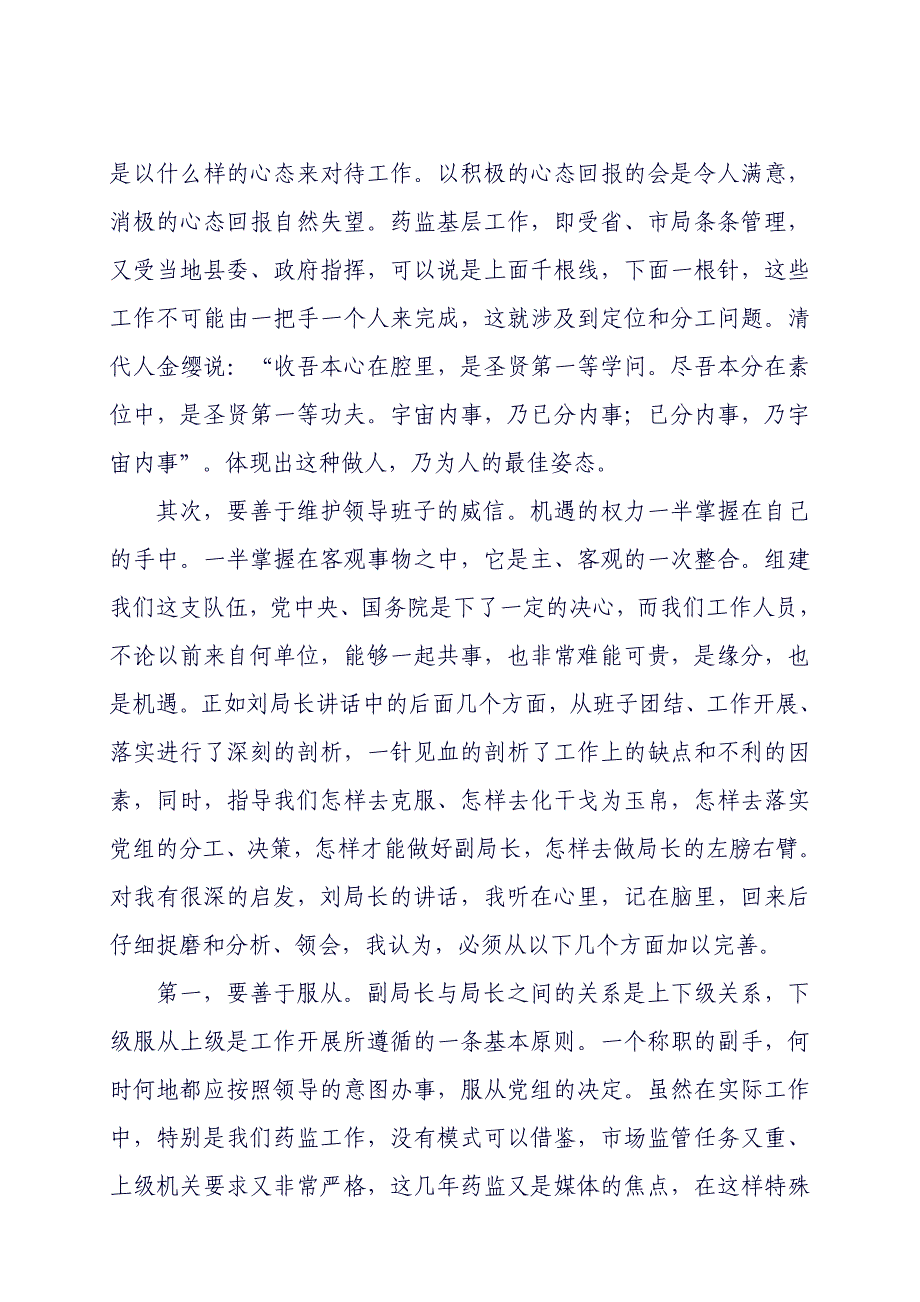 是以什么样的心态来对待工作。以积极的心态回报的会是令人满意，
消极的心态回报自然失望。药监基层工作，即受省、市局条条管理，
又受当地县委、政府指挥，可以说是上面千根线，下面一根针，这些
工作不可能由一把手一个人来完成，这就涉及到定位和分工问题。清
代人金缨说：“收吾本心在腔里，是圣贤第一等学问。尽吾本分在素
位中，是圣贤第一等功夫。宇宙内事，乃已分内事；已分内事，乃宇
宙内事”。体现出这种做人，乃为人的最佳姿态。
其次，要善于维护领导班子的威信。机遇的权力一半掌握在自己
的手中。一半掌握在客观事物之中，它是主、客观的一次整合。组建
我们这支队伍，党中央、国务院是下了一定的决心，而我们工作人员，
不论以前来自何单位，能够一起共事，也非常难能可贵，是缘分，也
是机遇。正如刘局长讲话中的后面几个方面，从班子团结、工作开展、
落实进行了深刻的剖析，一针见血的剖析了工作上的缺点和不利的因
素，同时，指导我们怎样去克服、怎样去化干戈为玉帛，怎样去落实
党组的分工、决策，怎样才能做好副局长，怎样去做局长的左膀右臂。
对我有很深的启发，刘局长的讲话，我听在心里，记在脑里，回来后
仔细捉磨和分析、领会，我认为，必须从以下几个方面加以完善。
第一，要善于服从。副局长与局长之间的关系是上下级关系，下
级服从上级是工作开展所遵循的一条基本原则。一个称职的副手，何
时何地都应按照领导的意图办事，服从党组的决定。虽然在实际工作
中，特别是我们药监工作，没有模式可以借鉴，市场监管任务又重、
上级机关要求又非常严格，这几年药监又是媒体的焦点，在这样特殊